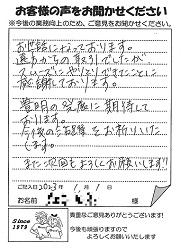 お客様の声をお聞かせください
※今後の業務向上のため、ご意見をお聞かせください。
お世話になっております。
遠方からの取引でしたが
スムーズにやりとりできたことに
感謝しております。
発展に期待して
おります。
お祈りいた
します。
また次回もよろしくお願いします!
ご記入日 2023年 1月 1日
お名前
Since
1973
貴重なご意見ありがとうございます!
今後も頑張りますので
よろしくお願いいたします